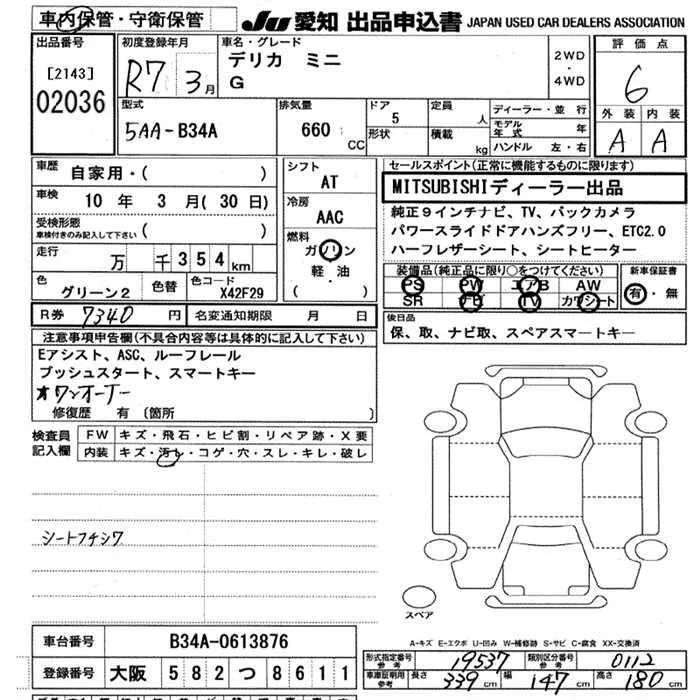 車内保管・守衛保管
JU 愛知 出品申込書 JAPAN USED CAR DEALERS ASSOCIATION
出品番号 [2143] 02036
初度登録年月 R7 3月
車名・グレード デリカ ミニ G
2WD・4WD
評価点 6
外装 A 内装 A
型式 5AA-B34A
排気量 660 CC
ドア 5 形状
定員 人 積載 kg
ディーラー・並行
モデル年式 年
ハンドル 左・右
車歴 自家用・( )
車検 10年 3月(30日)
受検形態 車検付きのみ記入して下さい ( )
走行 万 千354km
色 グリーン2 色替 色コード X42F29
シフト AT
冷房 AAC
燃料 ガソリン 軽・油 ( )
セールスポイント(正常に機能するものに限ります)
MITSUBISHIディーラー出品
純正9インチナビ、TV、バックカメラ
パワースライドドアハンズフリー、ETC2.0
ハーフレザーシート、シートヒーター
装備品(純正品に限り○をつけてください)
PS PW エアB AW
SR ナビ TV カワシート
新車保証書 有・無
R券 7340円 名変通知期限 月 日
後日品
保、取、ナビ取、スペアスマートキー
注意事項申告欄(不具合内容等は具体的に記入して下さい)
Eアシスト、ASC、ルーフレール
プッシュスタート、スマートキー
オワンオーナー
修復歴 有 〔箇所 〕
検査員記入欄
FW キズ・飛石・ヒビ割・リペア跡・X要
内装 キズ・汚レ・コゲ・穴・スレ・キレ・破レ
シートフチシワ
スペア
A-キズ E-エクボ U-凹み W-補修跡 S-サビ C-腐食 XX-交換済
車台番号 B34A-0613876
登録番号 大阪 582つ8611
形式指定番号 参考 19537 類別区分番号 参考 0112
車庫証明用参考 長さ 339cm 幅 147cm 高さ 180cm